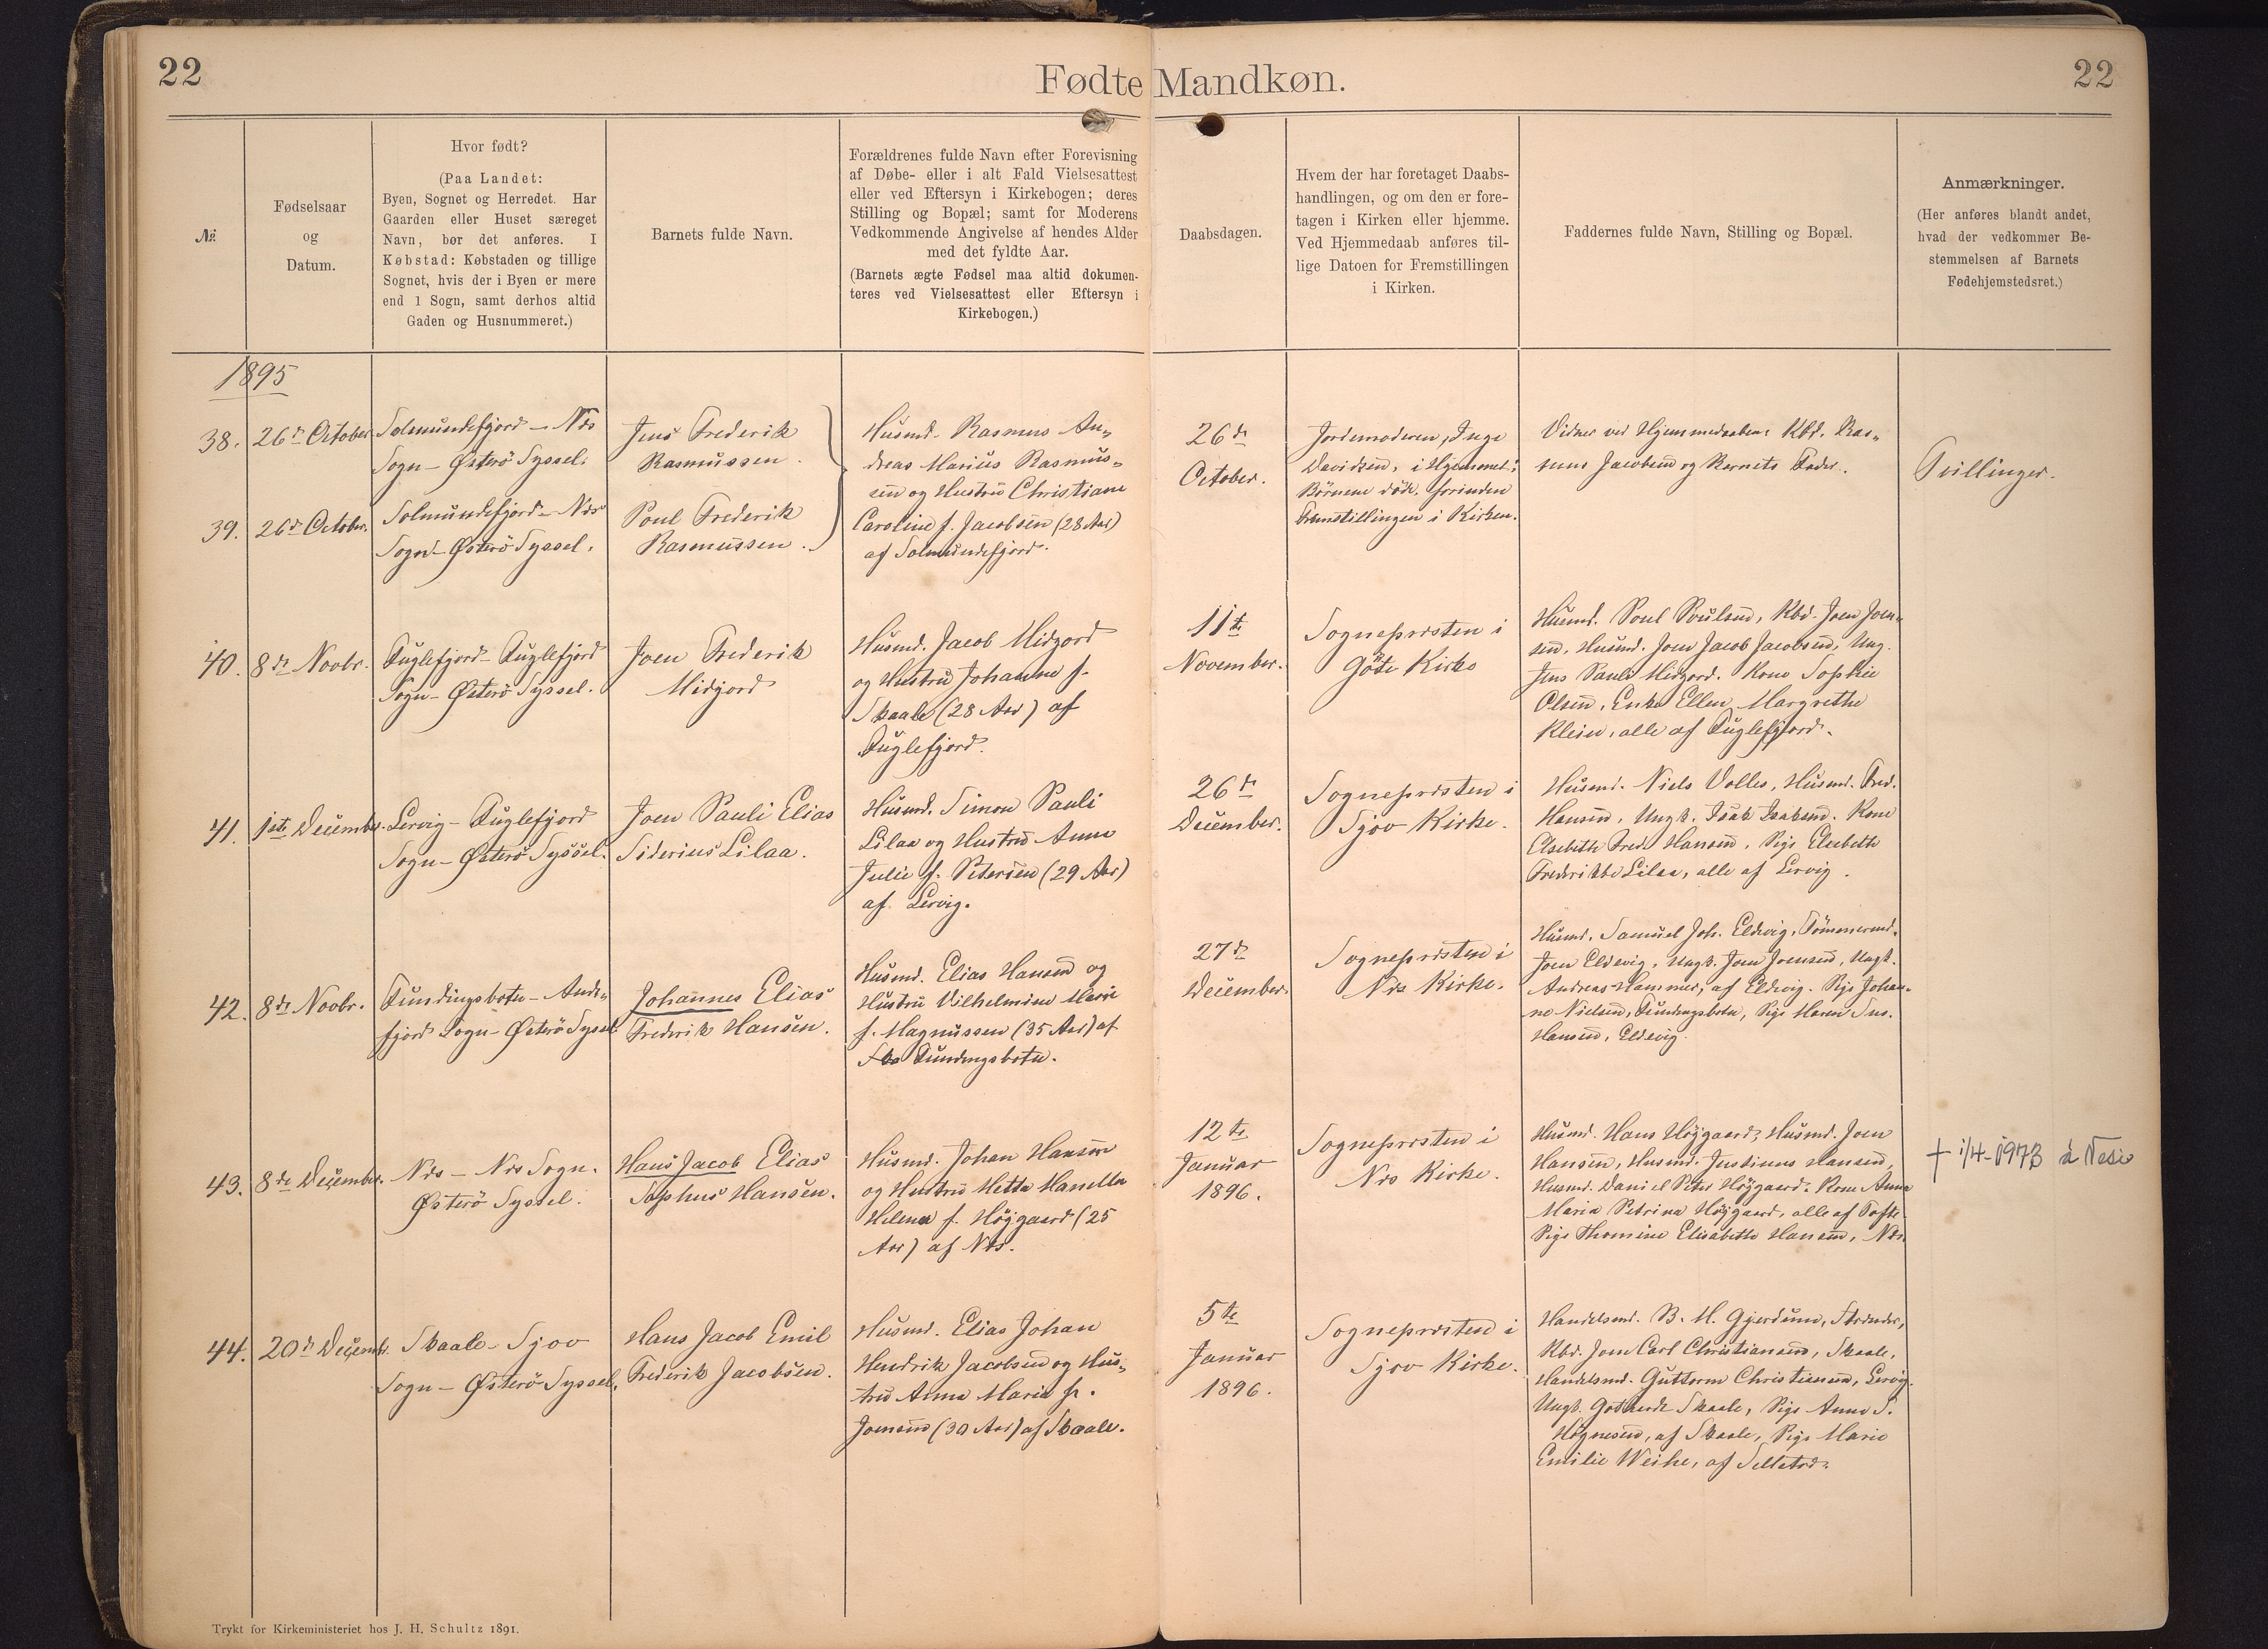 22
Fødte Mandkøn.
22
No.
Fødselsaar
og
Datum.
Hvor født?
(Paa Landet:
Byen, Sognet og Herredet. Har
Gaarden eller Huset særeget
Navn, bør det anføres. I
Købstad: Købstaden og tillige
Sognet, hvis der i Byen er mere
end 1 Sogn, samt derhos altid
Gaden og Husnummeret.)
Barnets fulde Navn.
Forældrenes fulde Navn efter Forevisning
af Døbe- eller i alt Fald Vielsesattest
eller ved Eftersyn i Kirkebogen; deres
Stilling og Bopæl; samt for Moderens
Vedkommende Angivelse af hendes Alder
med det fyldte Aar.
(Barnets ægte Fødsel maa altid dokumen-
teres ved Vielsesattest eller Eftersyn i
Kirkebogen.)
Daabsdagen.
Hvem der har foretaget Daabs-
handlingen, og om den er fore-
tagen i Kirken eller hjemme.
Ved Hjemmedaab anføres til-
lige Datoen for Fremstillingen
i Kirken.
Faddernes fulde Navn, Stilling og Bopæl.
Anmærkninger.
(Her anføres blandt andet,
hvad der vedkommer Be-
stemmelsen af Barnets
Fødehjemstedsret.)
1895
38.
26de October
Solmundefjord - Næs
Sogn - Østerö Syssel.
Jens Frederik
Rasmussen.
39.
26de October.
Solmundefjord - Næs
Sogn - Østerö Syssel.
Poul Frederik
Rasmussen.
Husmd. Rasmus An-
dreas Marius Rasmus-
sen og Hustru Christiane
Caroline f. Jacobsen (28 Aar)
af Solmundefjord.
26de
October.
Jordemoderen, Inge
Davidsen, i Hjemmet;
Börnene döde forinden
Fremstillingen i Kirken.
Vidner ved Hjemmedaaben: Kbd. Ras-
mus Jacobsen og Barnets Fader.
Tvillinger.
40.
8de Novbr.
Fuglefjord - Fuglefjord
Sogn - Østerö Syssel.
Joen Frederik
Midjord
Husmd. Jacob Midjord
og Hustru Johanne f.
Skaale (28 Aar) af
Fuglefjord.
11te
November.
Sognepræsten i
Göte Kirke
Husmd. Poul Poulsen, Kbd. Joen Joen-
sen, Husmd. Joen Jacob Jacobsen, Ung.
Jens Pauli Midjord. Kone Sophie
Olsen, Enke Ellen Margrethe
Klein, alle af Fuglefjord.
41.
1ste December.
Lervig - Fuglefjord
Sogn - Østerö Syssel.
Joen Pauli Elias
Siderius Lilaa.
Husmd. Simon Pauli
Lilaa og Hustru Anne
Julie f. Petersen (29 Aar)
af Lervig.
26de
December.
Sognepræsten i
Sjov Kirke.
Husmd. Niels Volles, Husmd. Fred.
Hansen, Ungk. Isak Isaksen. Kone
Elsebeth Fred. Hansen, Pige Elsebeth
Frederikke Lilaa, alle af Lervig.
42.
8de Novbr.
Fundingsbotn - Ande-
fjord Sogn - Østerö Syssel
Johannes Elias
Frederik Hansen.
Husmd. Elias Hansen og
Hustru Vilhelmine Marie
f. Magnussen (35 Aar) af
Fundingsbotn.
27de
December.
Sognepræsten i
Næs Kirke.
Husmd. Samuel Joh. Eldevig, Tömmermd.
Joen Eldevig, Ungk. Joen Joensen, Ungk.
Andreas Hammer, af Eldevig. Pige Johan-
ne Nielsen, Fundingsbotn, Pige Maren Sus.
Hansen, Eldevig.
43.
8de December.
Næs - Næs Sogn.
Østerö Syssel.
Hans Jacob Elias
Sophus Hansen.
Husmd. Johan Hansen
og Hustru Mette Hanella
Helena f. Höjgaard (25
Aar) af Næs.
12te
Januar
1896.
Sognepræsten i
Næs Kirke.
Husmd. Hans Höjgaard, Husmd. Joen
Hansen, Husmd. Justinus Hansen,
Husmd. Daniel Peter Höjgaard. Kone Anna
Maria Petrina Höjgaard, alle af Tofte.
Pige Thomine Elisabeth Hansen, Næs.
† 1/4-1973 á Nesi
44.
20de Decembr.
Skaale - Sjov
Sogn - Østerö Syssel.
Hans Jacob Emil
Frederik Jacobsen.
Husmd. Elias Johan
Hendrik Jacobsen og Hus-
tru Anne Marie f.
Joensen (30 Aar) af Skaale.
5te
Januar
1896.
Sognepræsten i
Sjov Kirke.
Handelsmd. B. M. Gjerdum, Strender,
Kbd. Joen Carl Christiansen, Skaale,
Handelsmd. Guttorm Christiansen, Lervig.
Ungk. Gotharde Skaale, Pige Anne S.
Högnesen, af Skaale, Pige Marie
Emilie Weihe, af Selletræ.
Trykt for Kirkeministeriet hos J. H. Schultz 1891.